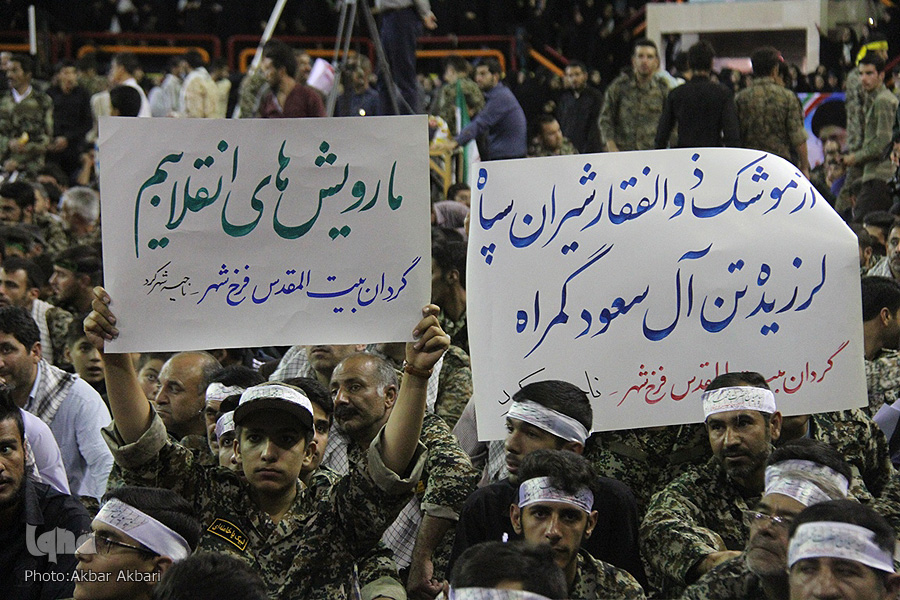 ما رویش های انقلابیم
گردان بیت المقدس فرخ شهر - ناحیه شهرکرد
از موشک ذوالفقار شیران سپاه
لرزیده تن آل سعود گمراه
گردان بیت المقدس فرخ شهر -
iqna
Photo:Akbar Akbari